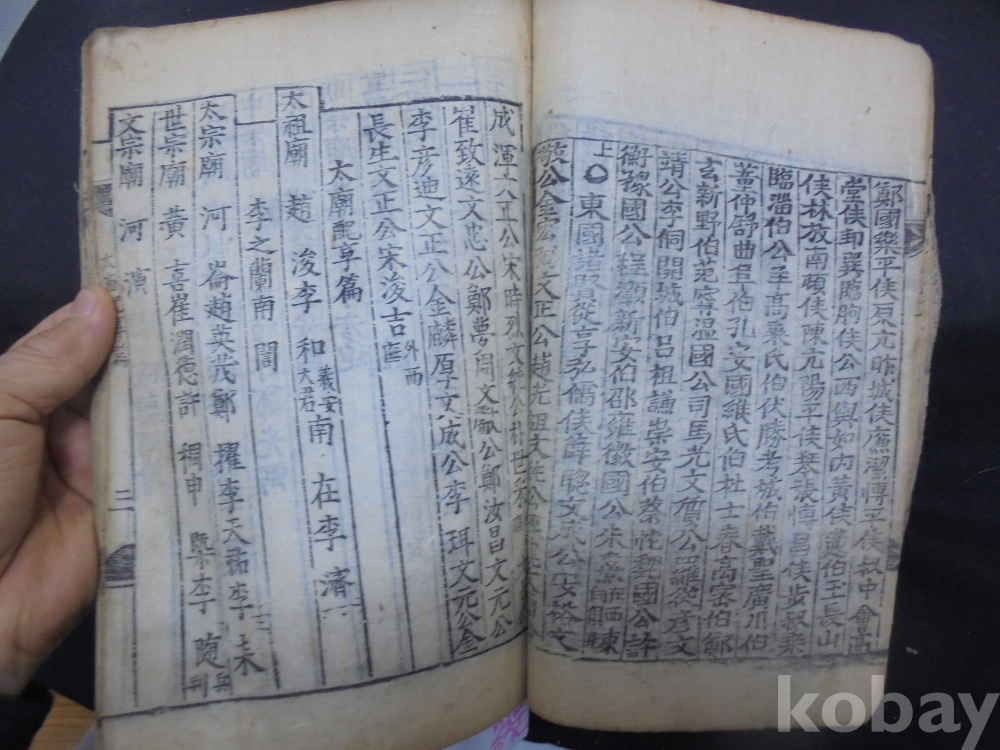 鄭國樂平侯原亢昨城侯廉潔博平侯叔中會高
堂侯邽巽臨朐侯公西輿如內黃侯蘧伯玉長山
侯林放南頓侯陳亢陽平侯琴張博昌侯步叔乘
臨淄伯公羊高乘氏伯伏勝考城伯戴聖廣川伯
董仲舒曲阜伯孔安國緱氏伯杜士春高密伯鄭
玄新野伯范甯溫國公司馬光文質公羅從彥文
靖公李侗開城伯呂祖謙崇安伯蔡沈魏國公許
衡豫國公程顥新安伯邵雍徽國公朱熹在西東
上〇東國諸賢從享弘儒侯薛聰文成公安裕文
敬公金宏弼文正公趙光祖文純公
成渾文正公宋時烈文純公朴世采
崔致遠文忠公鄭夢周文獻公鄭汝昌文元公
李彦迪文正公金麟厚文成公李珥文元公金
長生文正公宋浚吉外西
太廟配享篇
太祖廟 趙浚李和義安大君南在李濟
李之蘭南誾
太宗廟 河崙趙英茂鄭擢李天祐李來
世宗廟 黃喜崔潤德許稠申槩李隨
文宗廟 河演
二
kobay